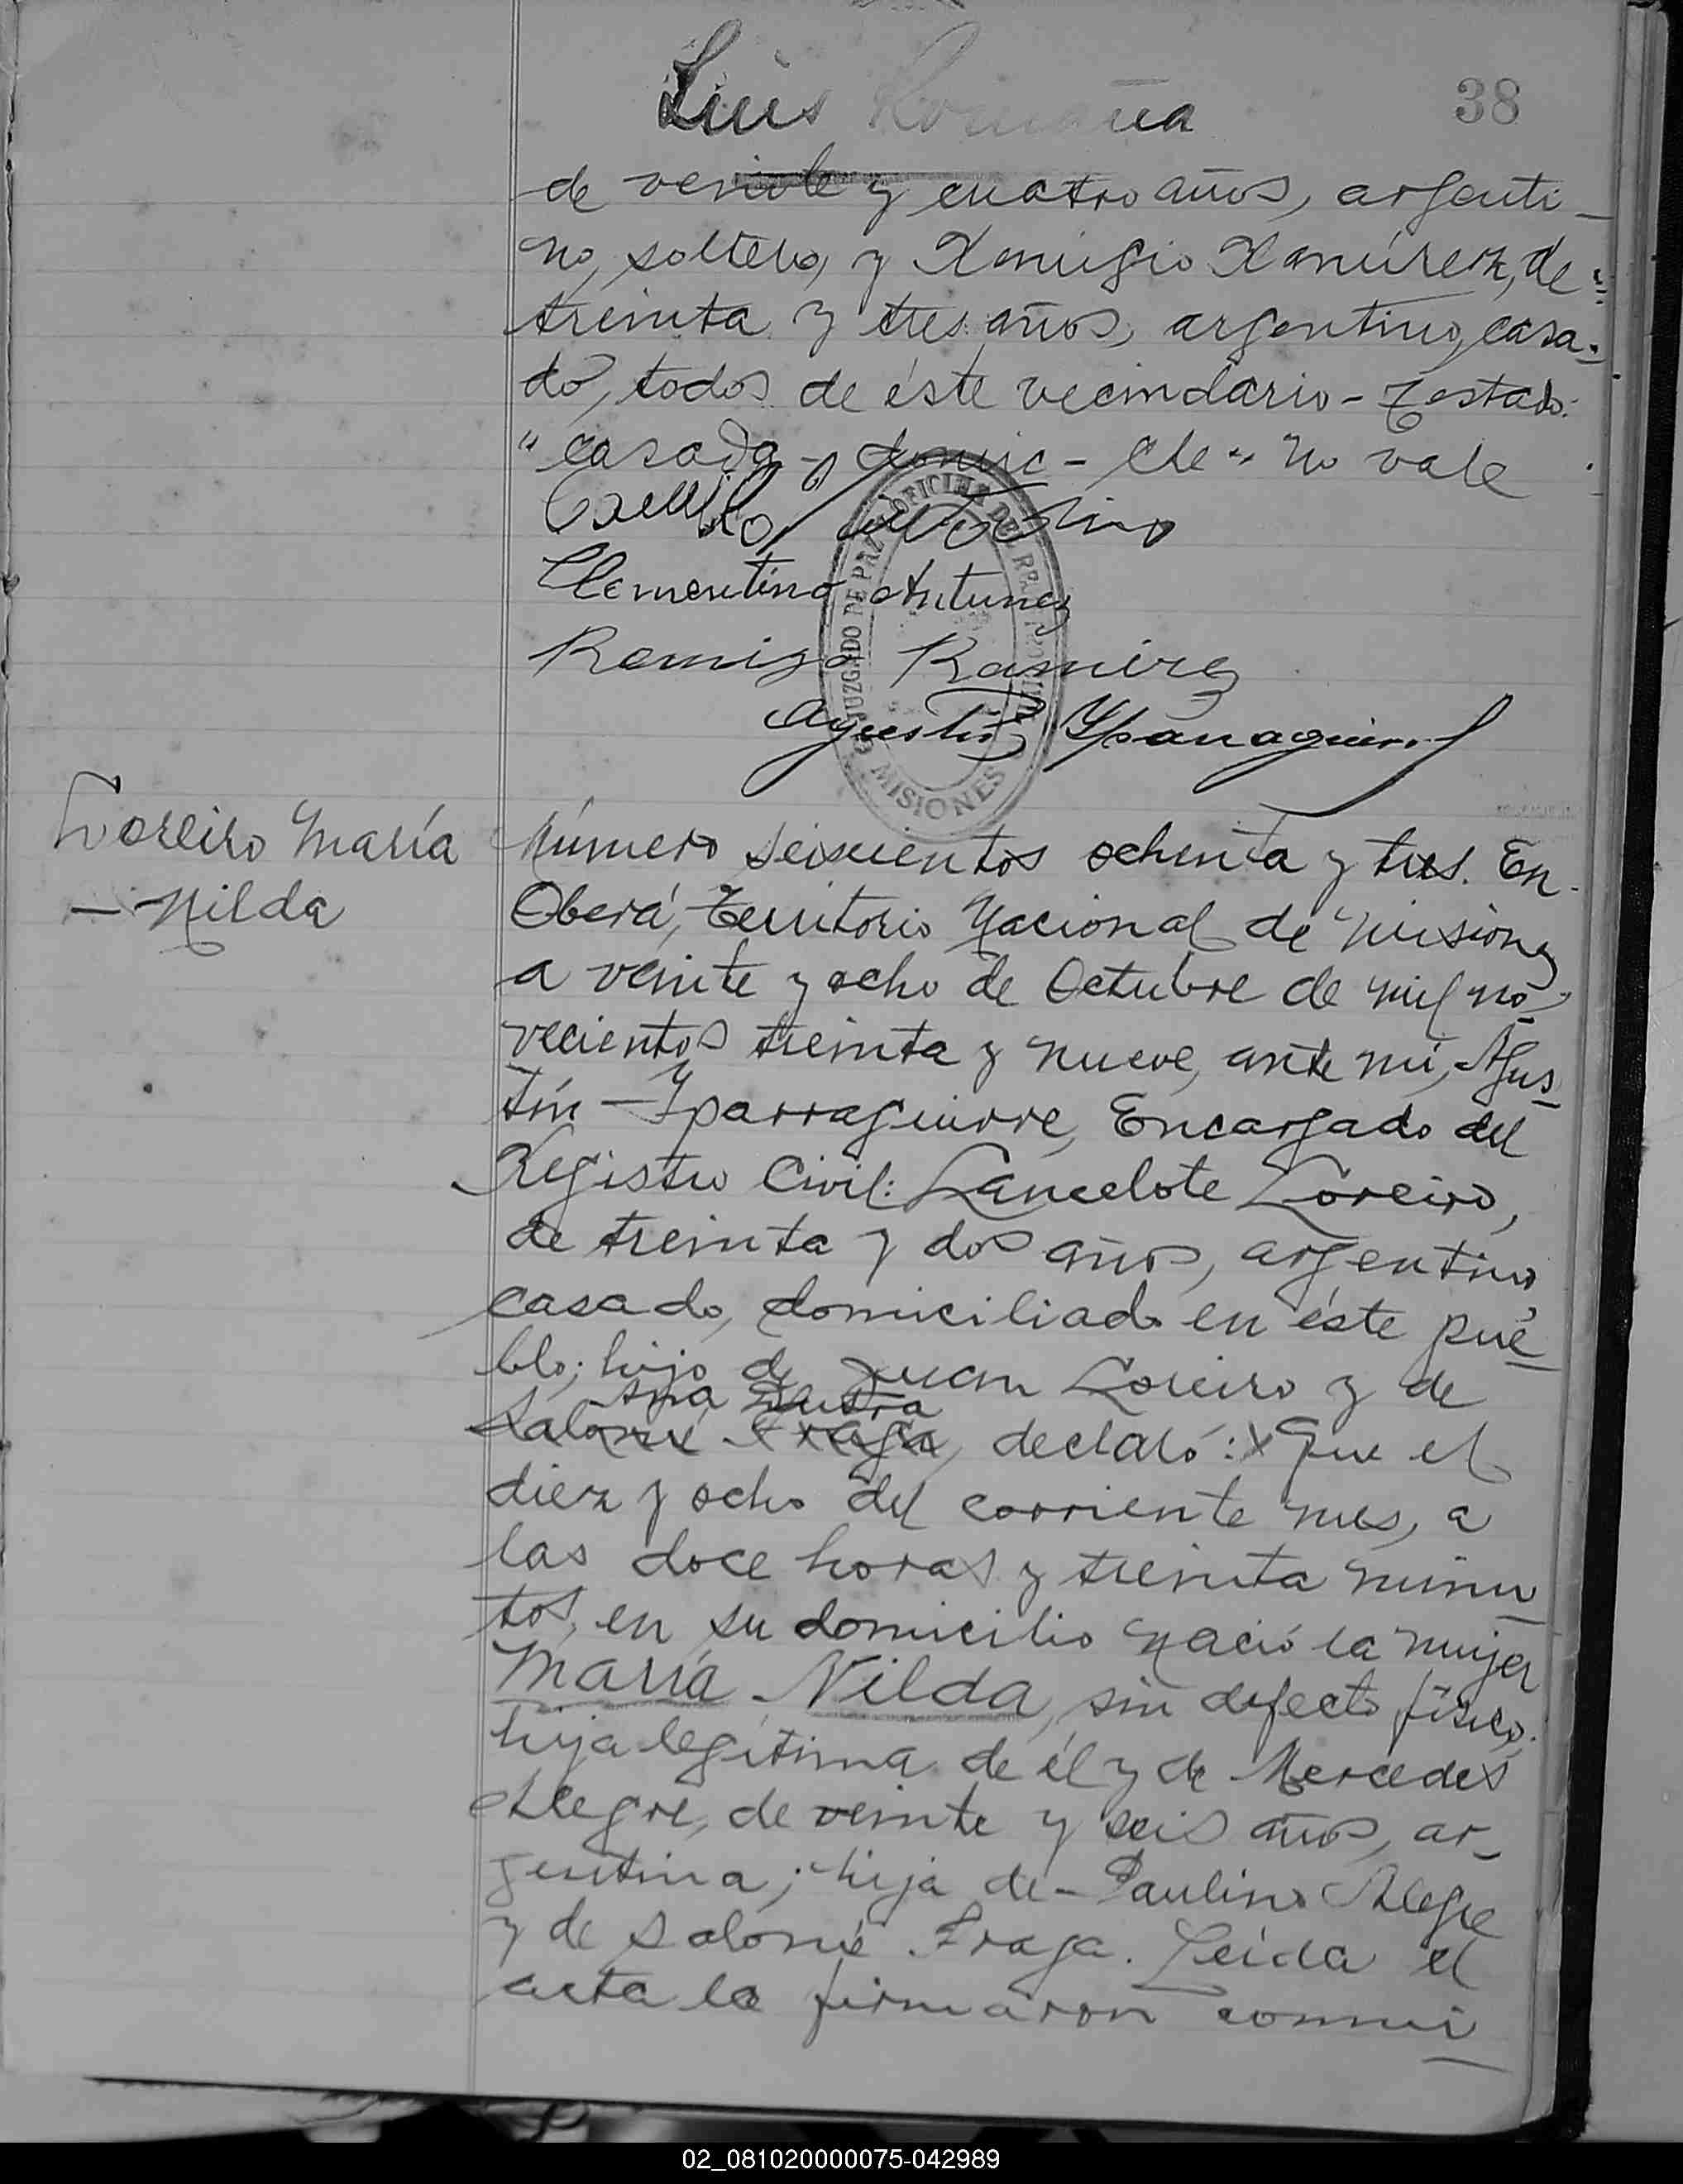 38
Luis Romaña
de veinte y cuatro años, argenti-
no, soltero, y Remigio Ramírez, de
treinta y tres años, argentino, casa-
do, todos de éste vecindario - Testado:
"casada - domic - Che" no vale
Clementino Antunez
Remigo Ramirez
Agustin Yparraguirre
JUZGADO DE PAZ OFICINA DEL
MISIONES
Loreiro María
- Nilda
Número seiscientos ochenta y tres. En
Oberá, Territorio Nacional de Misiones
a veinte y ocho de Octubre de mil no-
vecientos treinta y nueve, ante mí, Agus-
tín Yparraguirre, Encargado del
Registro Civil: Lancelote Loreiro,
de treinta y dos años, argentino,
casado, domiciliado en éste pue-
blo; hijo de Juan Loreiro y de
Ana Dutra
Salomé Fraga, declaró: Que el
diez y ocho del corriente mes, a
las doce horas y treinta minu-
tos, en su domicilio nació la mujer
María Nilda, sin defecto físico,
hija legítima de él y de Mercedes
Alegre, de veinte y seis años, ar-
gentina; hija de Paulino Alegre
y de Salomé Fraga. Leída el
acta la firmaron conmi-
02_081020000075-042989